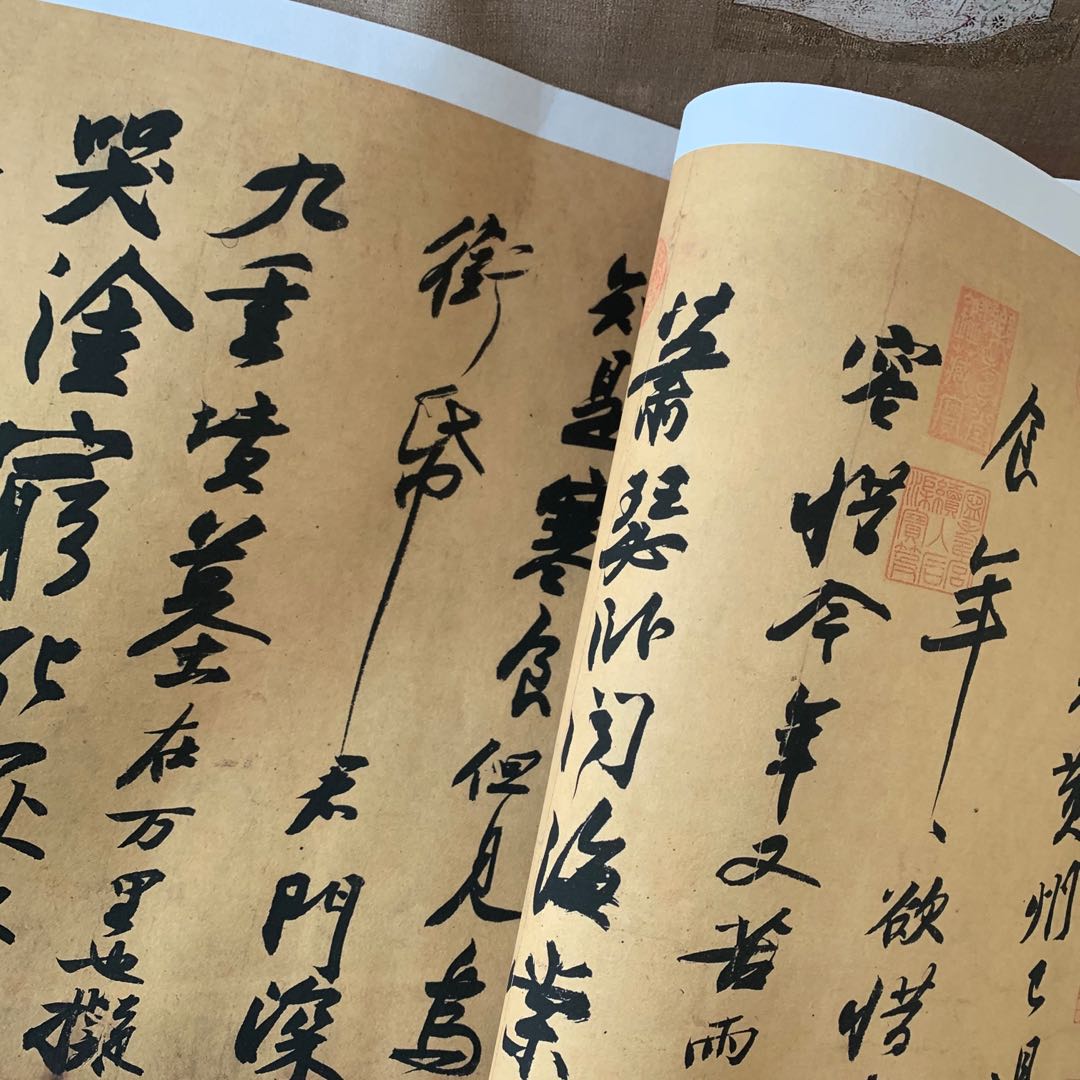 黄州已
食年、欲惜
容惜今年又苦雨
蕭瑟卧聞海棠
知是寒食但見烏
銜帋君門深
九重墳墓在万里也擬
哭塗窮死灰